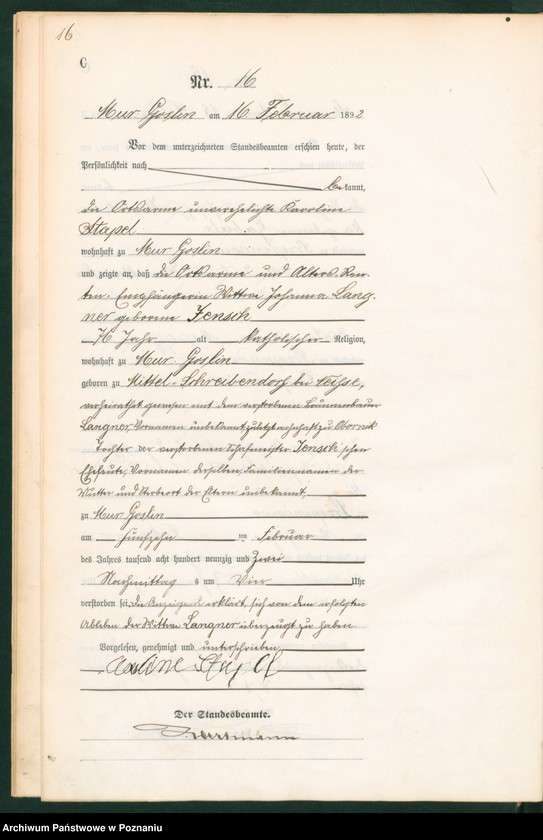 16
C
Nr. 16
Mur. Goslin am 16 Februar 1892
Vor dem unterzeichneten Standesbeamten erschien heute, der
Persönlichkeit nach
be kannt,
die Ortsarme unverehelichte Karoline
Stapel
wohnhaft zu Mur. Goslin
und zeigte an, daß die Ortsarme und Alters-Ren-
ten-Empfängerin Wittwe Johanna Lang-
ner geborene Jensch
76 Jahr alt katholischer Religion,
wohnhaft zu Mur. Goslin
geboren zu Mittel-Schreibendorf bei Neisse,
verheirathet gewesen mit dem verstorbenen Brunnenbauer
Langner, Vornamen unbekannt, zuletzt wohnhaft zu Obornik
Tochter der verstorbenen Schafmeister Jensch'schen
Eheleute, Vornamen derselben, Familiennamen der
Mutter und Sterbeort der Eltern unbekannt,
zu Mur. Goslin
am fünfzehn ten Februar
des Jahres tausend acht hundert neunzig und zwei
Nachmittag s um vier Uhr
verstorben sei, die Anzeigende erklärt, sich von dem erfolgten
Ableben der Wittwe Langner überzeugt zu haben
Vorgelesen, genehmigt und unterschrieben
Der Standesbeamte.
Archiwum Państwowe w Poznaniu